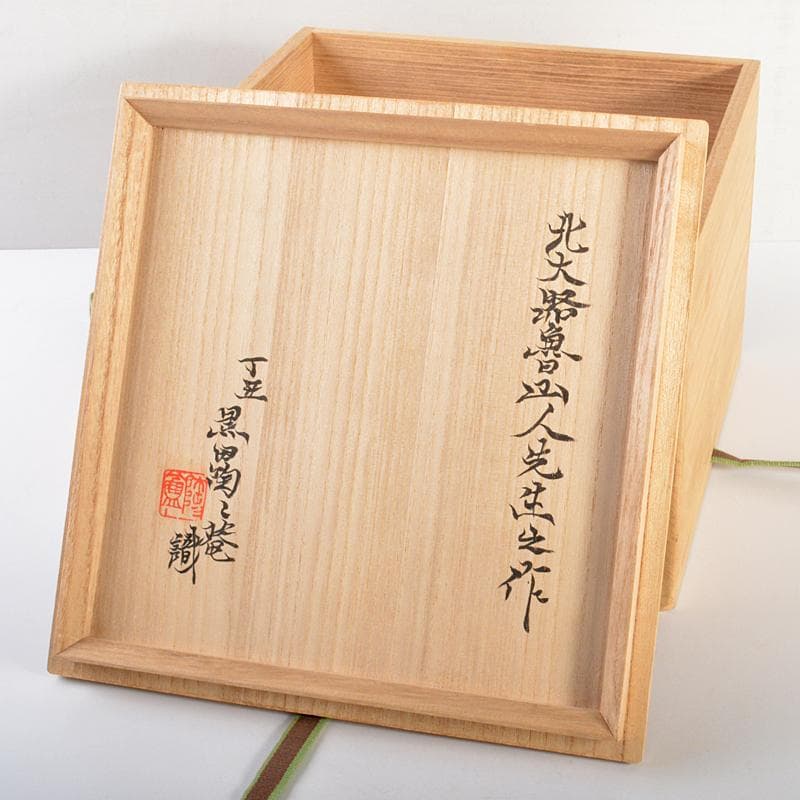 北大路魯山人先生之作
丁丑
黒田陶々菴
識